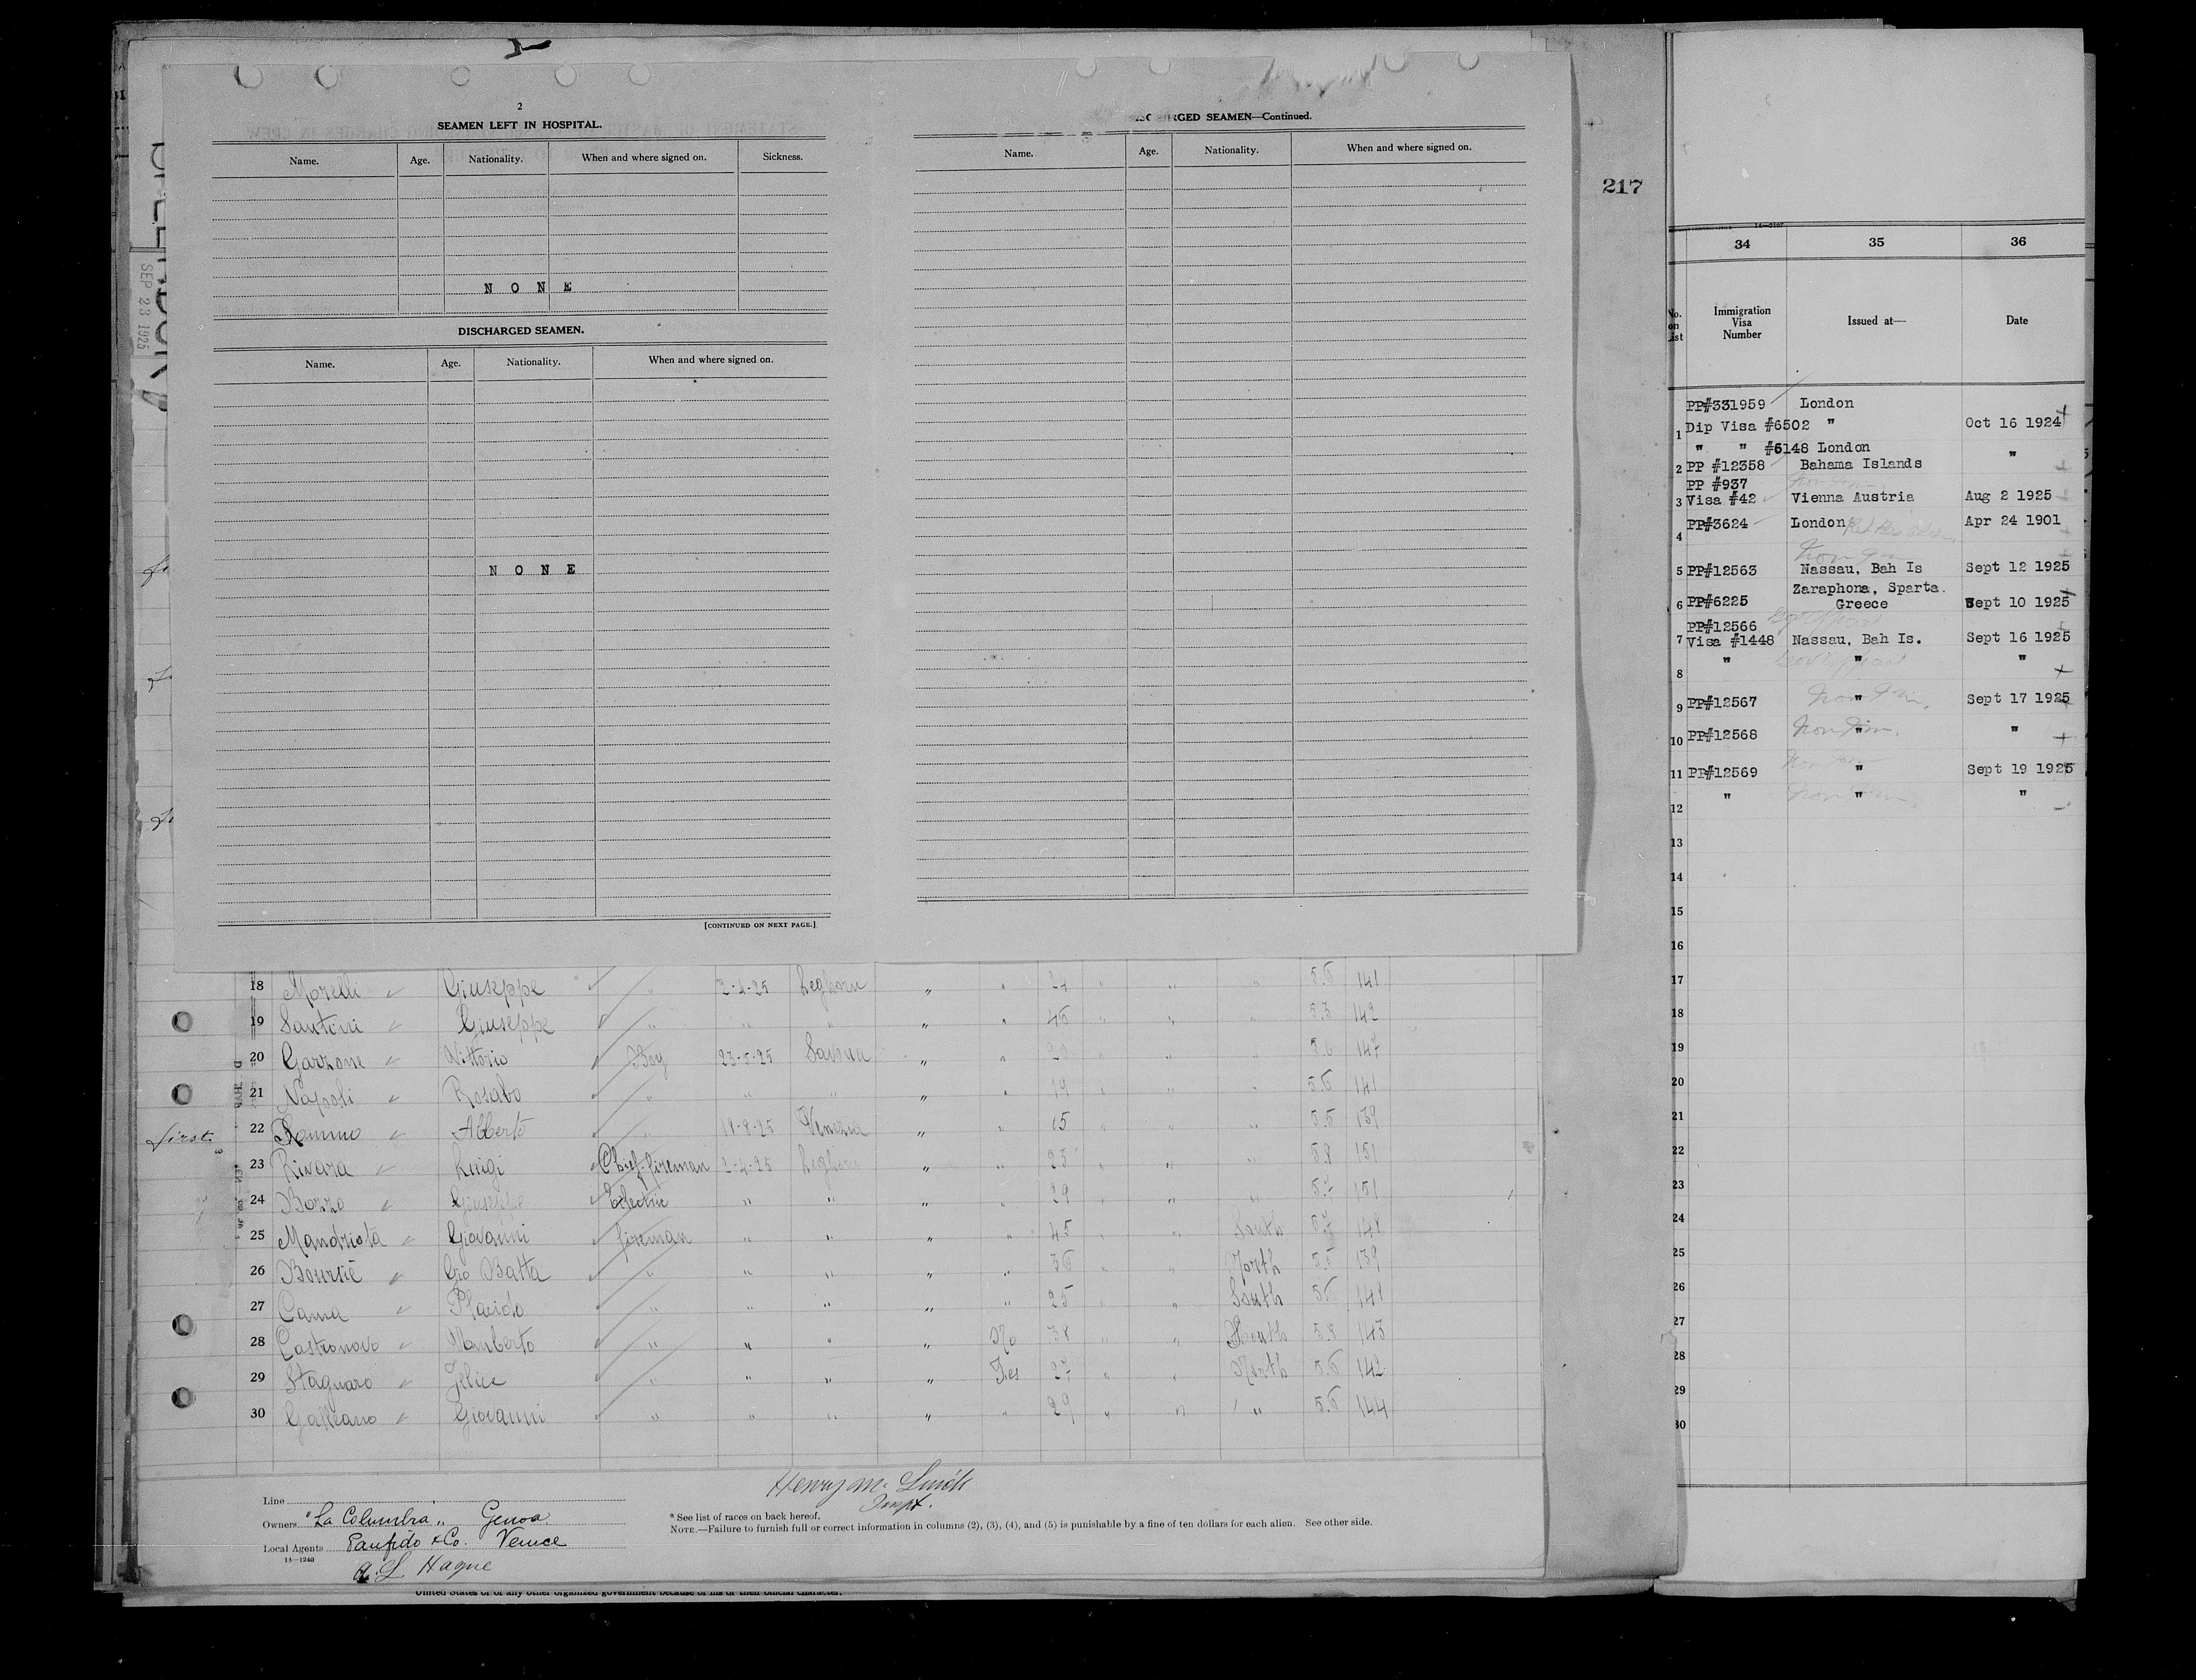 2
SEAMEN LEFT IN HOSPITAL.
Name. Age. Nationality. When and where signed on. Sickness.
N O N E
DISCHARGED SEAMEN.
Name. Age. Nationality. When and where signed on.
N O N E
[CONTINUED ON NEXT PAGE.]
RGED SEAMEN—Continued.
Name. Age. Nationality. When and where signed on.
217
SEP 23 1925
18 Morelli Giuseppe " 2-4-25 Leghorn " " 24 " " " 5.6 141
19 Santini Giuseppe " " " " " 46 " " " 5.5 142
20 Garzone Vittorio Boy 23-5-25 Savona " " 20 " " " 5.6 147
21 Napoli Rosabo " " " " " 19 " " " 5.6 141
first. 22 Alberto " 18-8-25 Venezia " " 15 " " " 5.5 139
23 Rivara Luigi Chief-fireman 2-4-25 Leghorn " " 23 " " " 5.8 151
24 Bozzo Giuseppe Electric " " " " 29 " " " 5.7 151
25 Mandriota Giovanni fireman " " " " 45 " " South 148
26 Boursié Gio Batta " " " " " 36 " " North 5.5 139
27 Cama Placido " " " " " 25 " " South 5.6 141
28 Castronovo Umberto " " " " No 38 " " South 5.8 143
29 Stagnaro Felice " " " " Yes 27 " " North 5.6 142
30 Galleano Giovanni " " " " " 29 " " " 5.6 144
Line
Owners "La Columbia" Genoa
Local Agents Panfido & Co. Venice
14—1240
A. L. Hague
Henry M.
Inspt.
* See list of races on back hereof.
NOTE.—Failure to furnish full or correct information in columns (2), (3), (4), and (5) is punishable by a fine of ten dollars for each alien. See other side.
United States or of any other organized government because of his or their official character.
34 35 36
No. on List Immigration Visa Number Issued at— Date
PP#331959 London
1 Dip Visa #6502 " Oct 16 1924
" " #6148 London "
2 PP #12358 Bahama Islands
PP #937
3 Visa #42 Vienna Austria Aug 2 1925
4 PP#3624 London Apr 24 1901
Non Im
5 PP#12563 Nassau, Bah Is Sept 12 1925
Zaraphona, Sparta.
6 PP#6225 Greece Sept 10 1925
PP#12566
7 Visa #1448 Nassau, Bah Is. Sept 16 1925
8 " " "
9 PP#12567 " Non Im. Sept 17 1925
10 PP#12568 " Non Im. "
11 PP#12569 " Sept 19 1925
12 " " "
13
14
15
16
17
18
19
20
21
22
23
24
25
26
27
28
29
30